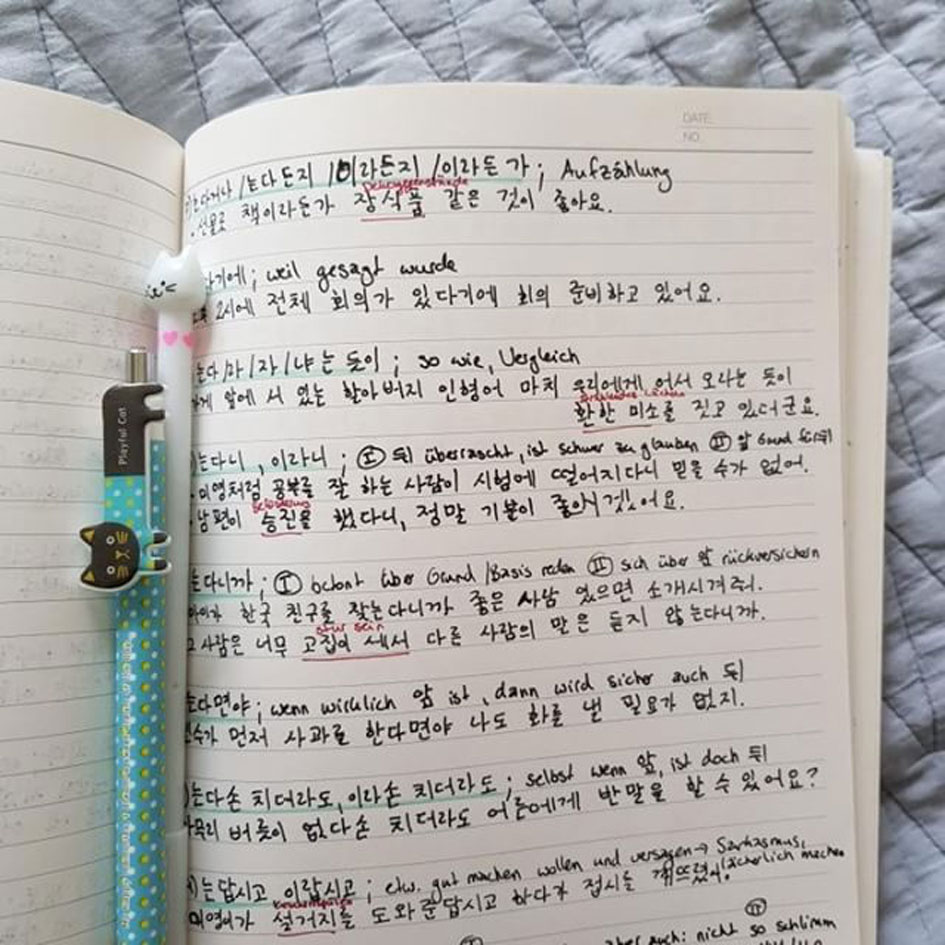 DATE.
NO.
는다거나 /는다든지 /이라든지 /이라든가 ; Aufzählung
선물로 책이라든가 장식품 같은 것이 좋아요.
다기에 ; weil gesagt wurde
2시에 전체 회의가 있다기에 회의 준비하고 있어요.
는다/라/자/냐는 듯이 ; so wie, Vergleich
가게 앞에 서 있는 할아버지 인형이 마치 우리에게 어서 오라는 듯이
환한 미소를 짓고 있더군요.
는다니, 이라니 ; Ⓘ 뒤 überrascht, ist schwer zu glauben Ⓘ Ⓘ 앞 Grund für 뒤
미영처럼 공부를 잘 하는 사람이 시험에 떨어지다니 믿을 수가 없어.
Beförderung
남편이 승진을 했다니, 정말 기분이 좋아시겠어요.
는다니까 ; Ⓘ betont über Grund/Basis reden sich über 앞 rückversichern
한국 친구를 찾는다니까 좋은 사람 있으면 소개시켜줘.
stur sein
그 사람은 너무 고집이 세서 다른 사람의 말은 듣지 않는다니까.
는다면야 ; wenn wirklich 앞 ist, dann wird sicher auch 뒤
먼저 사과를 한다면야 나도 화를 낼 필요가 없지.
는다손 치더라도, 이라손 치더라도 ; selbst wenn 앞, ist doch 뒤
버릇이 없다손 치더라도 어른에게 반말을 할 수 있어요?
는답시고 이랍시고 ; etw. gut machen wollen und versagen → Sarkasmus,
lächerlich machen
미영이가 설거지를 도와준답시고 하다가 접시를 깨뜨렸어.
aber auch: nicht so schlimm
Playful Cat